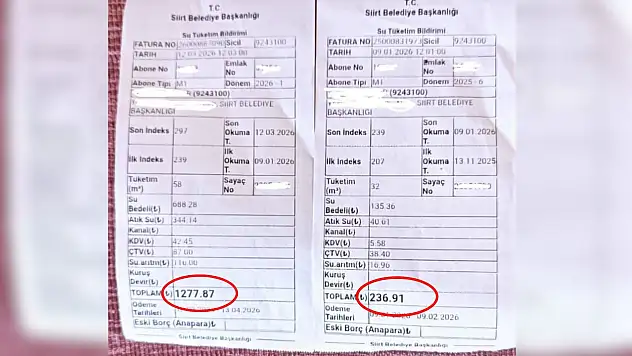 T.C.
Siirt Belediye Başkanlığı
Su Tüketim Bildirimi
FATURA NO Sicil 9243100
TARİH 12.03.2026
Abone No Emlak No
Abone Tipi M1 Dönem 2026 - 1
(9243100)
SİİRT BELEDİYE BAŞKANLIĞI
Son İndeks 297 Son Okuma T. 12.03.2026
İlk İndeks 239 İlk Okuma T. 09.01.2026
Tüketim (m³) 58 Sayaç No
Su Bedeli(₺) 688.28
Atık Su(₺) 344.14
Kanal(₺)
KDV(₺) 42.45
ÇTV(₺) 87.00
Su.arıtm(₺) 116.00
Kuruş Devir(₺)
TOPLAM(₺) 1277.87
Ödeme Tarihleri 13.04.2026
Eski Borç (Anapara)₺
Siirt Belediye Başkanlığı
T.C.
Siirt Belediye Başkanlığı
Su Tüketim Bildirimi
FATURA NO Sicil 9243100
TARİH 09.01.2026
Abone No Emlak No
Abone Tipi M1 Dönem 2025 - 6
(9243100)
SİİRT BELEDİYE BAŞKANLIĞI
Son İndeks 239 Son Okuma T. 09.01.2026
İlk İndeks 207 İlk Okuma T. 13.11.2025
Tüketim (m³) 32 Sayaç No
Su Bedeli(₺) 135.36
Atık Su(₺) 40.61
Kanal(₺)
KDV(₺) 5.58
ÇTV(₺) 38.40
Su.arıtm(₺) 16.96
Kuruş Devir(₺)
TOPLAM(₺) 236.91
Ödeme Tarihleri 09.02.2026
Eski Borç (Anapara)₺
Siirt Belediye Başkanlığı